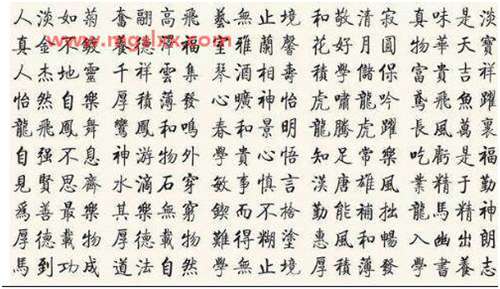 人淡如菊 奮翮高飛 藝無止境 和敬清寂 真味是淡
真金不 厚德載福 室雅蘭馨 花好月圓 物華天寶
人杰地靈 千祥雲集 琴酒相壽 積學儲 富貴吉祥
怡然自樂 厚積薄發 心曠神怡 虎嘯龍吟 鳶飛魚躍
龍飛鳳舞 鸞鳳和鳴 春和景明 龍騰虎躍 長風萬裏
自强不息 神游物外 學貴心悟 知足常樂 吃虧是福
見賢思齊 水滴石穿 敏事慎言 漢唐雄風 業精于勤
爲善最樂 其樂無窮 鍥而不捨 勤能補拙 龍馬精神
厚德載物 厚德載物 難得糊塗 惠風和暢 入幽出朗
馬到功成 道法自然 學無止境 厚積薄發 學書養志
www.mgslxx.com